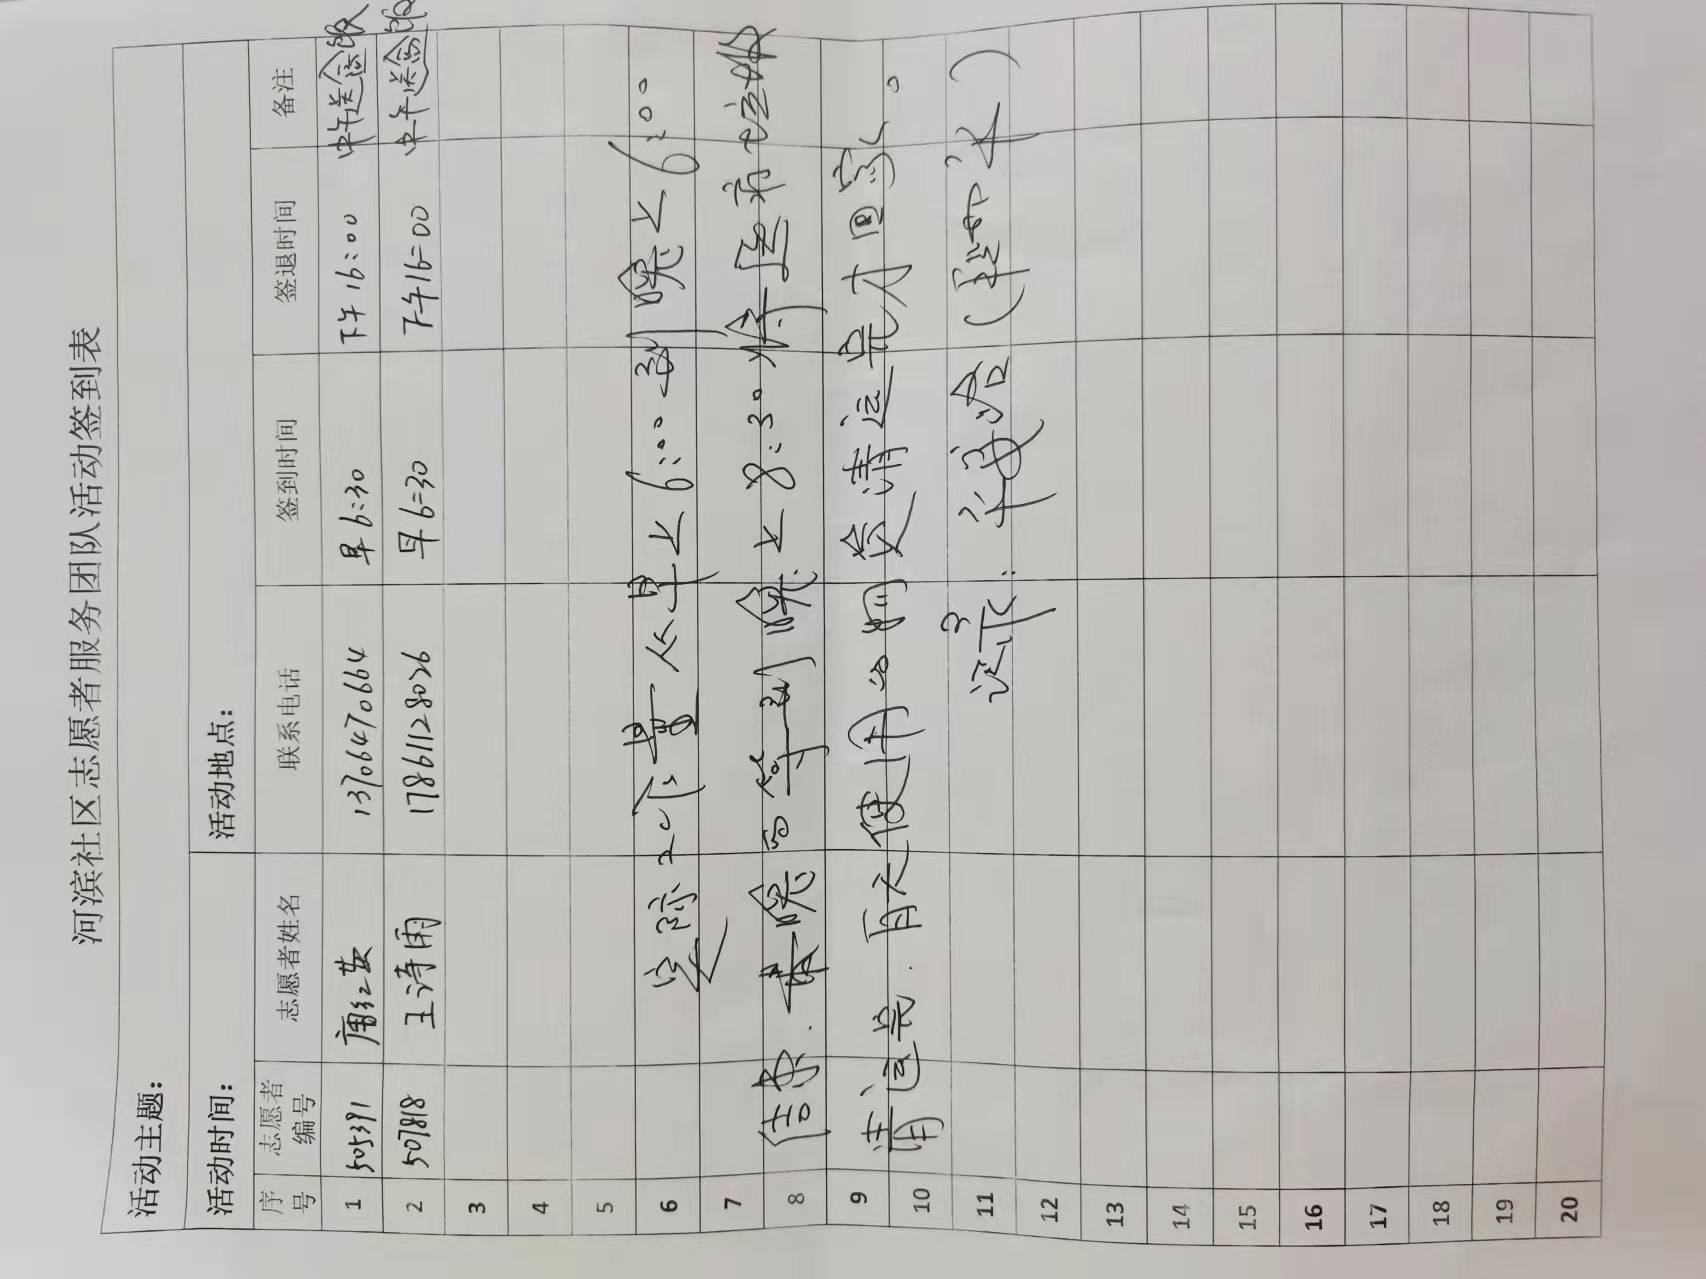 河滨社区志愿者服务团队活动签到表
活动主题：
活动时间： 活动地点：
序号 志愿者编号 志愿者姓名 联系电话 签到时间 签退时间 备注
1 505391 唐红英 13706470664 早6:30 下午16:00 中午送盒饭
2 507818 王诗雨 17861128026 早6:30 下午16:00 中午送盒饭
3
4
5
6 实际工作量从早上6:00到晚上6:00
7
8 结束.最晚的单到晚上8:30将医疗垃圾
9 清运完.再把使用的物资清运完才回家。
10
11 证明:
12
13
14
15
16
17
18
19
20